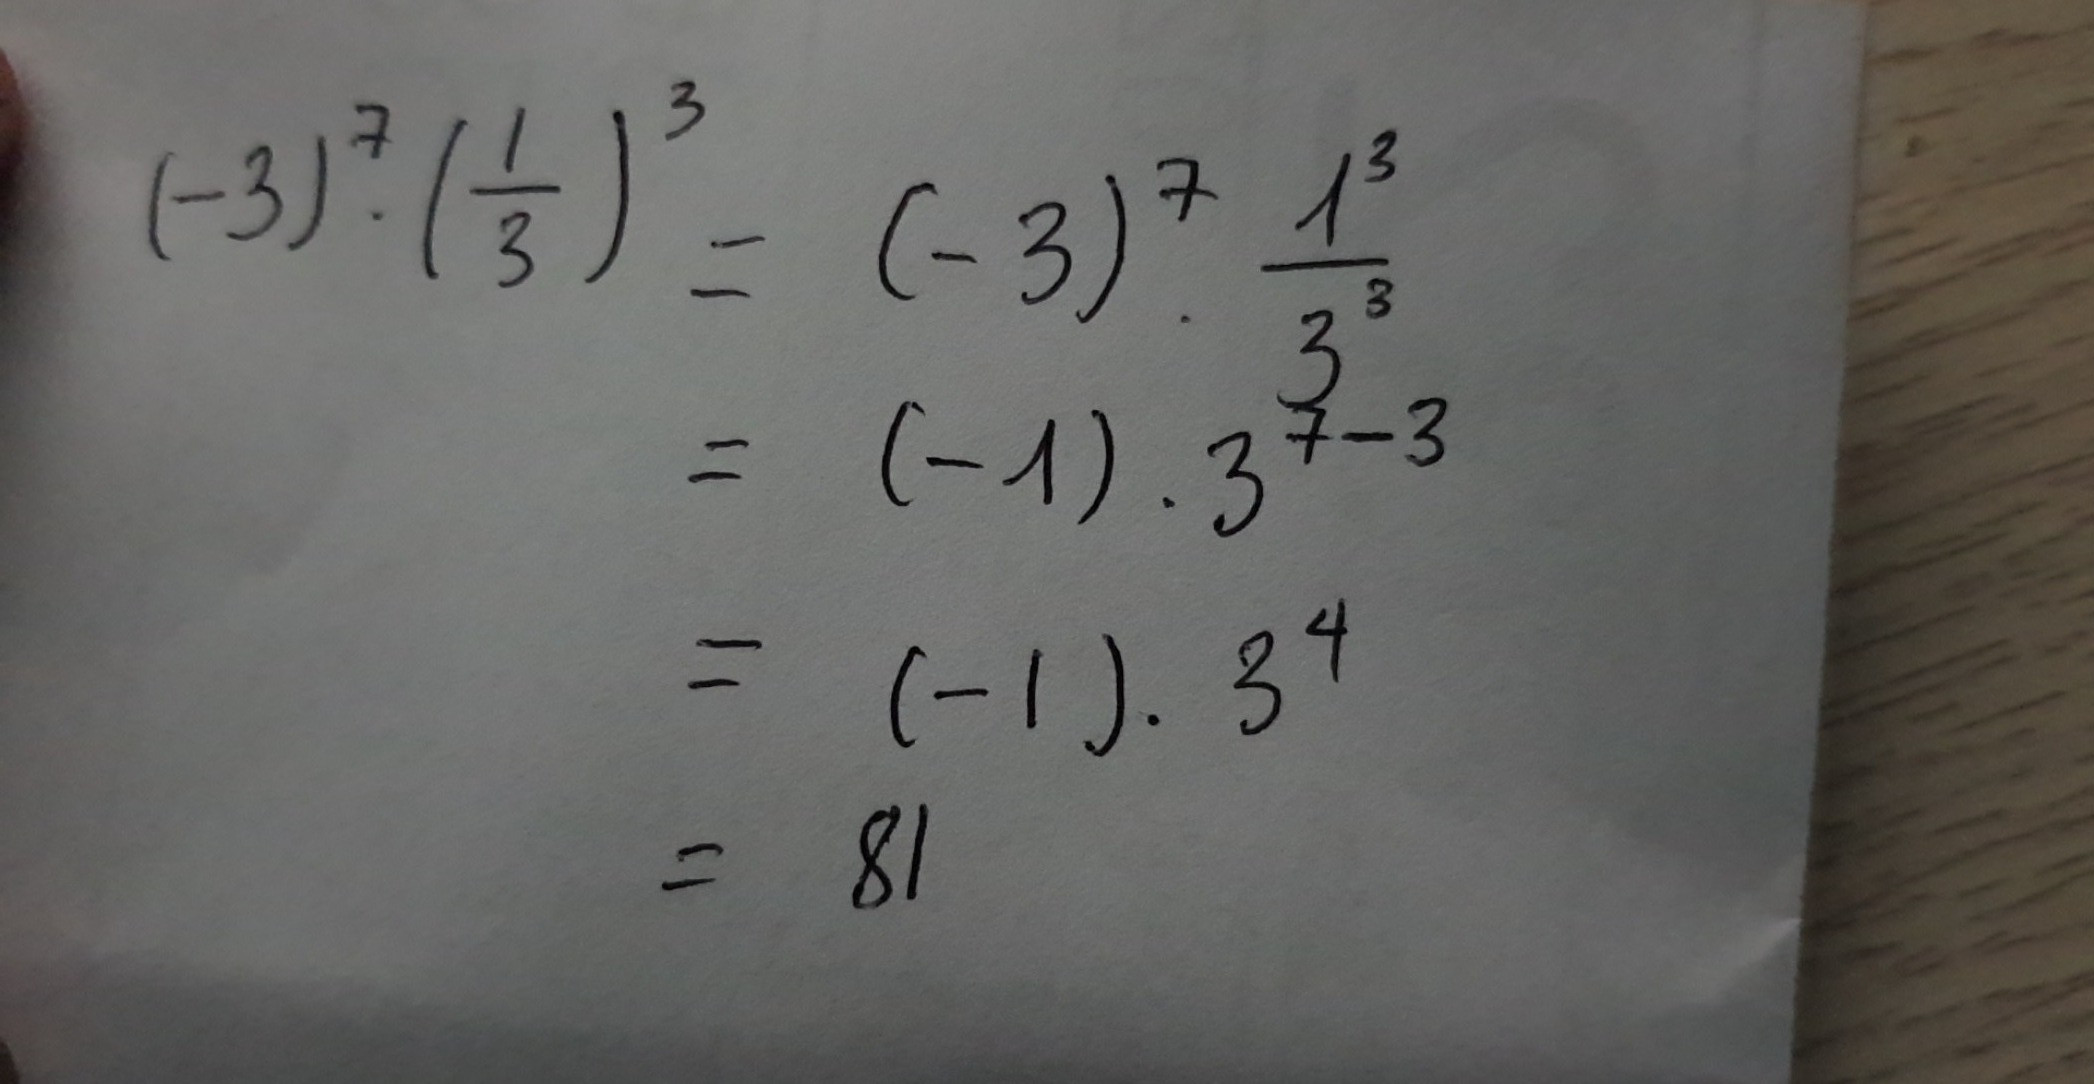 (-3)⁷ · (1/3)³ = (-3)⁷ · 1³/3³
= (-1) · 3⁷⁻³
= (-1) · 3⁴
= 81